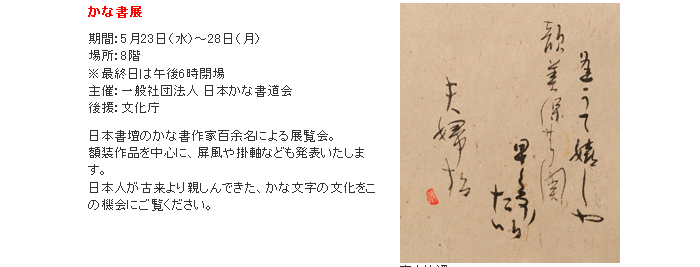 かな書展
期間：５月23日（水）～28日（月）
場所：8階
※最終日は午後6時閉場
主催：一般社団法人 日本かな書道会
後援：文化庁
日本書壇のかな書作家百余名による展覧会。
額装作品を中心に、屏風や掛軸なども発表いたしま
す。
日本人が古来より親しんできた、かな文字の文化をこ
の機会にご覧ください。
夫婦